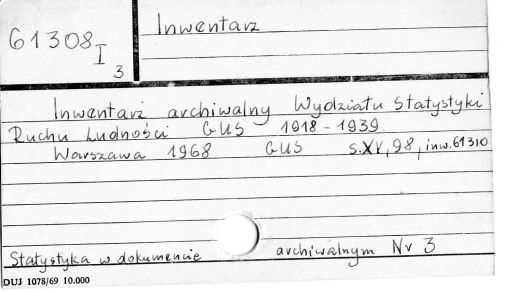 61308 I 3
Inwentarz
Inwentarz archiwalny Wydziału Statystyki
Ruchu Ludności GUS 1918-1939
Warszawa 1968 GUS s.XV, 98, inw. 61310
Statystyka w dokumencie archiwalnym Nr 3
DUJ 1078/69 10.000